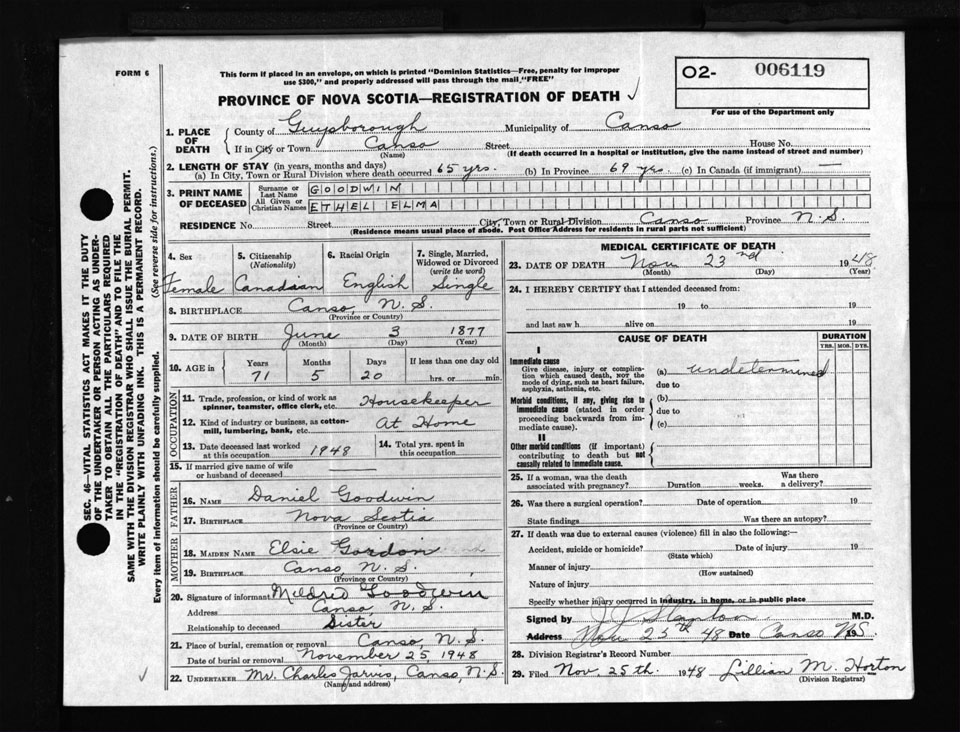 FORM 6
This form if placed in an envelope, on which is printed "Dominion Statistics—Free, penalty for improper
use $300," and properly addressed will pass through the mail "FREE"
PROVINCE OF NOVA SCOTIA—REGISTRATION OF DEATH ✓
O2- 006119
For use of the Department only
SEC. 46—VITAL STATISTICS ACT MAKES IT THE DUTY
OF THE UNDERTAKER OR PERSON ACTING AS UNDER-
TAKER TO OBTAIN ALL THE PARTICULARS REQUIRED
IN THE "REGISTRATION OF DEATH" AND TO FILE THE
SAME WITH THE DIVISION REGISTRAR WHO SHALL ISSUE THE BURIAL PERMIT.
WRITE PLAINLY WITH UNFADING INK. THIS IS A PERMANENT RECORD.
Every item of information should be carefully supplied. (See reverse side for instructions.)
1. PLACE OF DEATH
County of Guysborough Municipality of Canso
If in City or Town Canso Street House No.
(Name) (If death occurred in a hospital or institution, give the name instead of street and number)
2. LENGTH OF STAY (in years, months and days)
(a) In City, Town or Rural Division where death occurred 65 yrs. (b) In Province 69 yrs. (c) In Canada (if immigrant) —
3. PRINT NAME OF DECEASED
Surname or Last Name GOODWIN
All Given or Christian Names ETHEL ELMA
RESIDENCE No. Street City, Town or Rural Division Canso Province N.S.
(Residence means usual place of abode. Post Office Address for residents in rural parts not sufficient)
4. Sex 5. Citizenship (Nationality) 6. Racial Origin 7. Single, Married, Widowed or Divorced (write the word)
Female Canadian English Single
8. BIRTHPLACE Canso, N.S.
(Province or Country)
9. DATE OF BIRTH June 3 1877
(Month) (Day) (Year)
10. AGE in Years Months Days If less than one day old
71 5 20 hrs. or min.
OCCUPATION
11. Trade, profession, or kind of work as
spinner, teamster, office clerk, etc. Housekeeper
12. Kind of industry or business, as cotton-
mill, lumbering, bank, etc. At Home
13. Date deceased last worked
at this occupation 1948
14. Total yrs. spent in
this occupation
15. If married give name of wife
or husband of deceased
FATHER
16. NAME Daniel Goodwin
17. BIRTHPLACE Nova Scotia
(Province or Country)
MOTHER
18. MAIDEN NAME Elsie Gordon
19. BIRTHPLACE Canso, N.S.
(Province or Country)
20. Signature of informant Mildred Goodwin
Address Canso, N.S.
Relationship to deceased Sister
21. Place of burial, cremation or removal Canso, N.S.
Date of burial or removal November 25, 1948
22. UNDERTAKER Mr. Charles Jarvis, Canso, N.S.
(Name and address)
MEDICAL CERTIFICATE OF DEATH
23. DATE OF DEATH Nov 23nd 1948
(Month) (Day) (Year)
24. I HEREBY CERTIFY that I attended deceased from:
19 to 19
and last saw h alive on 19
CAUSE OF DEATH DURATION
YRS. MOS. DYS.
I
Immediate cause
Give disease, injury or complica-
tion which caused death, NOT the
mode of dying, such as heart failure,
asphyxia, asthenia, etc.
(a) undetermined
due to
Morbid conditions, if any, giving rise to
immediate cause (stated in order
proceeding backwards from im-
mediate cause).
(b)
due to
(c)
II
Other morbid conditions (if important)
contributing to death but not
causally related to immediate cause.
25. If a woman, was the death
associated with pregnancy? Duration weeks. Was there
a delivery?
26. Was there a surgical operation? Date of operation 19
State findings Was there an autopsy?
27. If death was due to external causes (violence) fill in also the following:—
Accident, suicide or homicide? Date of injury 19
(State which)
Manner of injury
(How sustained)
Nature of injury
Specify whether injury occurred in industry, in home, or in public place
Signed by M.D.
Address Nov 23th 48 Date Canso N.S. 19
28. Division Registrar's Record Number
29. Filed Nov. 25th. 1948 Lillian M. Horton
(Division Registrar)